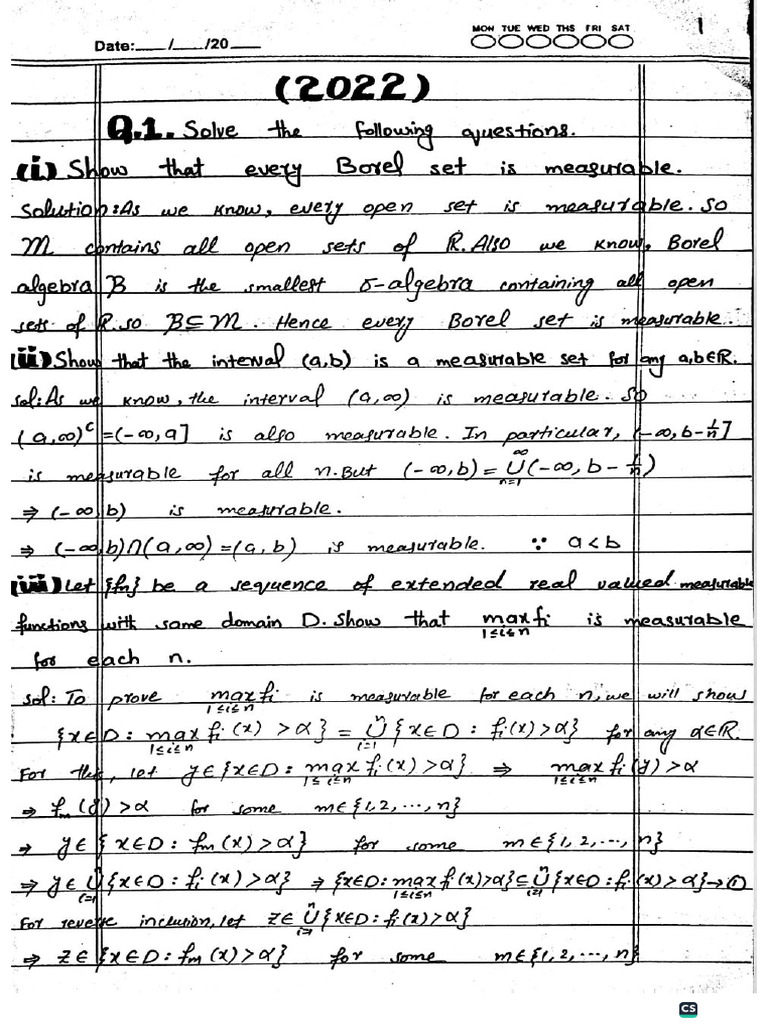 1
MON TUE WED THS FRI SAT
Date:___/___/20___
(2022)
Q.1. Solve the following questions.
(i) Show that every Borel set is measurable.
Solution: As we know, every open set is measurable. So
M contains all open sets of R. Also we know, Borel
algebra B is the smallest σ-algebra containing all open
sets of R. so B⊆M. Hence every Borel set is measurable.
(ii) Show that the interval (a,b) is a measurable set for any a,b∈R.
Sol: As we know, the interval (a,∞) is measurable. So
(a,∞)ᶜ=(-∞,a] is also measurable. In particular, (-∞,b-1/n]
is measurable for all n. But (-∞,b) = ∞⋃n=1 (-∞, b-1/n)
⇒ (-∞,b) is measurable.
⇒ (-∞,b)∩(a,∞)=(a,b) is measurable. ∵ a<b
(iii) Let {fn} be a sequence of extended real valued measurable
functions with same domain D. Show that max fi 1≤i≤n is measurable
for each n.
sol: To prove max fi 1≤i≤n is measurable for each n, we will show
{x∈D: max 1≤i≤n fi(x) >α} = n⋃i=1 {x∈D: fi(x)>α} for any α∈R.
For this, let y∈{x∈D: max 1≤i≤n fi(x)>α} ⇒ max 1≤i≤n fi(y)>α
⇒ fm(y)>α for some m∈{1,2,...,n}
⇒ y∈{x∈D: fm(x)>α} for some m∈{1,2,...,n}
⇒ y∈ n⋃i=1 {x∈D: fi(x)>α} ⇒ {x∈D: max 1≤i≤n fi(x)>α}⊆ n⋃i=1 {x∈D: fi(x)>α}→①
For reverse inclusion, let z∈ n⋃i=1 {x∈D: fi(x)>α}
⇒ z∈{x∈D: fm(x)>α} for some m∈{1,2,...,n}
CS